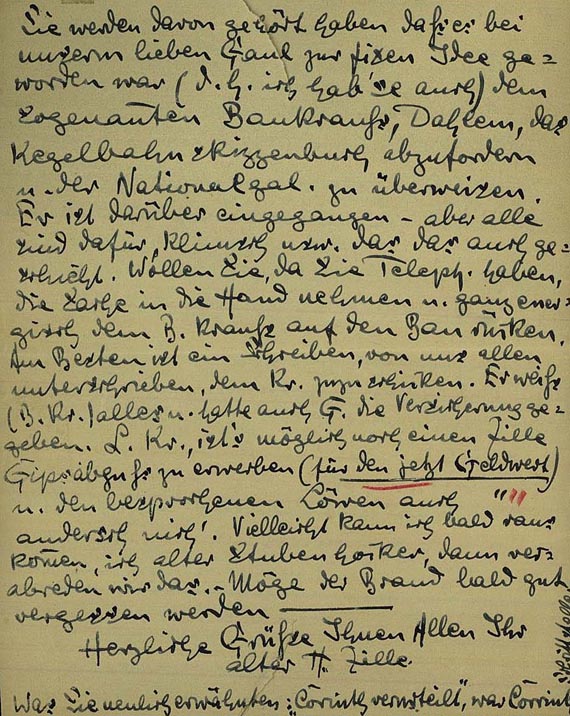 Sie werden davon gehört haben dass es bei
unserm lieben Gaul zur fixen Idee ge=
worden war (d.h. ich hab'se auch) dem
sogenanten Bankrauss, Dahlem, das
Kegelbahnskizzenbuch abzufordern
u. der Nationalgal. zu überweisen.
Er ist darüber eingegangen – aber alle
sind dafür, Klimsch usw. das das auch ge=
schieht. Wollen Sie, da Sie Teleph. haben,
die Sache in die Hand nehmen u. ganz ener=
gisch dem B. Krauss auf den Ban rüken.
Am Besten ist ein Schreiben, von uns allen
unterschrieben, dem Kr. zuzuschiken. Er weiss
(B. Kr.) alles u. hatte auch G. die Versicherung ge=
geben. L. Kr., ist's möglich noch einen Zille
Gipsabguss zu erwerben (für den jetzt Geldwert)
u. den besprochenen Löwen auch " "
anders nich'. Vielleicht kann ich bald raus
komen, ich alter Stubenhoker, dann ver=
abreden wir das. – Möge der Brand bald gut
vergessen werden
Herzliche Grüsse Ihnen Allen Ihr
alter H. Zille
Was Sie neulich erwähnten: "Corinth verurteilt", war Corinth